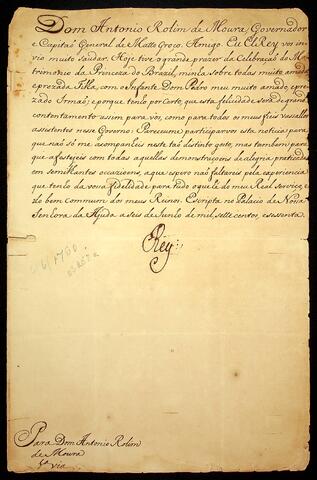 Dom Antonio Rolim de Moura Governador
e Capitaõ General de Matto Groço. Amigo. Eu ElRey vos in
vio muito saudar. Hoje tive o grande prazer da Celebraçaõ do Ma
trimonio da Princeza do Brazil, minha sobre todas muito amada,
e prezada Filha, com o Infante Dom Pedro meu muito amado, e pre
zado Irmaõ; e porque tenho por Certo, que esta felicidade será de grande
contentamento assim para vós, como para todos os meus fieis vassallos
assistentes nesse Governo: Pareceume participarvos esta noticia para
que naõ só me acompanheis neste taõ distinto gosto, mas tambem para
que a festejeis com todas aquellas demonstraçoens de alegria praticadas
em similhantes occazioens, a que espero naõ faltareis pela experiencia
que tenho da vossa fidelidade para tudo o que hé do meu Real serviço, e
do bem commum dos meus Reinos. Escripta no Palacio de Nossa
Senhora da Ajuda, a seis de Junho de mil, sette centos, e sessenta.
Rey
6/6/1760
Para Dom Antonio Rolim
de Moura
via